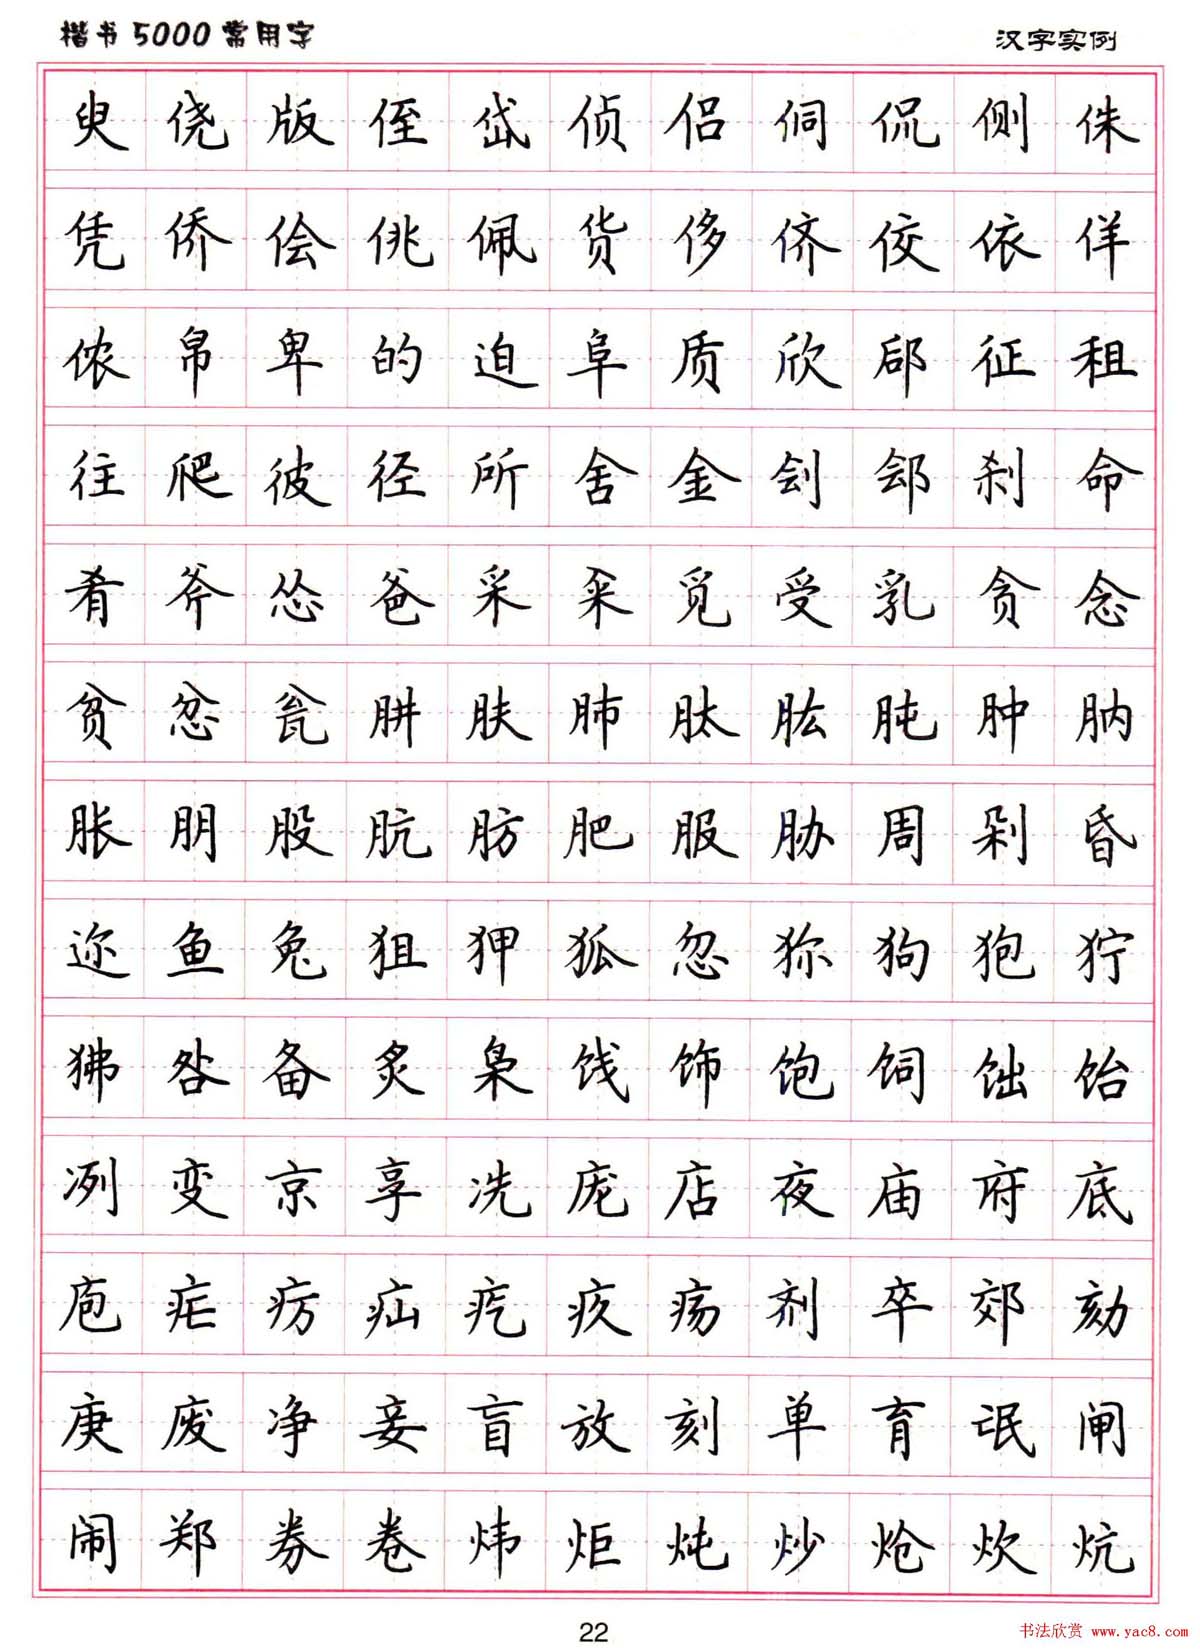 楷书5000常用字 汉字实例
臾侥版侄岱侦侣侗侃侧侏
凭侨侩佻佩货侈侪佼依佯
侬帛卑的迫阜质欣郈征徂
往爬彼径所舍金刽郐刹命
肴斧怂爸采籴觅受乳贪念
贫忿瓮肼肤肺肽肱肫肿肭
胀朋股肮肪肥服胁周剁昏
迩鱼兔狙狎狐忽狝狗狍狞
狒咎备炙枭饯饰饱饲饳饴
冽变京享冼庞店夜庙府底
庖疟疠疝疙疚疡剂卒郊劾
庚废净妾盲放刻单育氓闸
闹郑券卷炜炬炖炒炝炊炕
22
书法欣赏 www.yac8.com